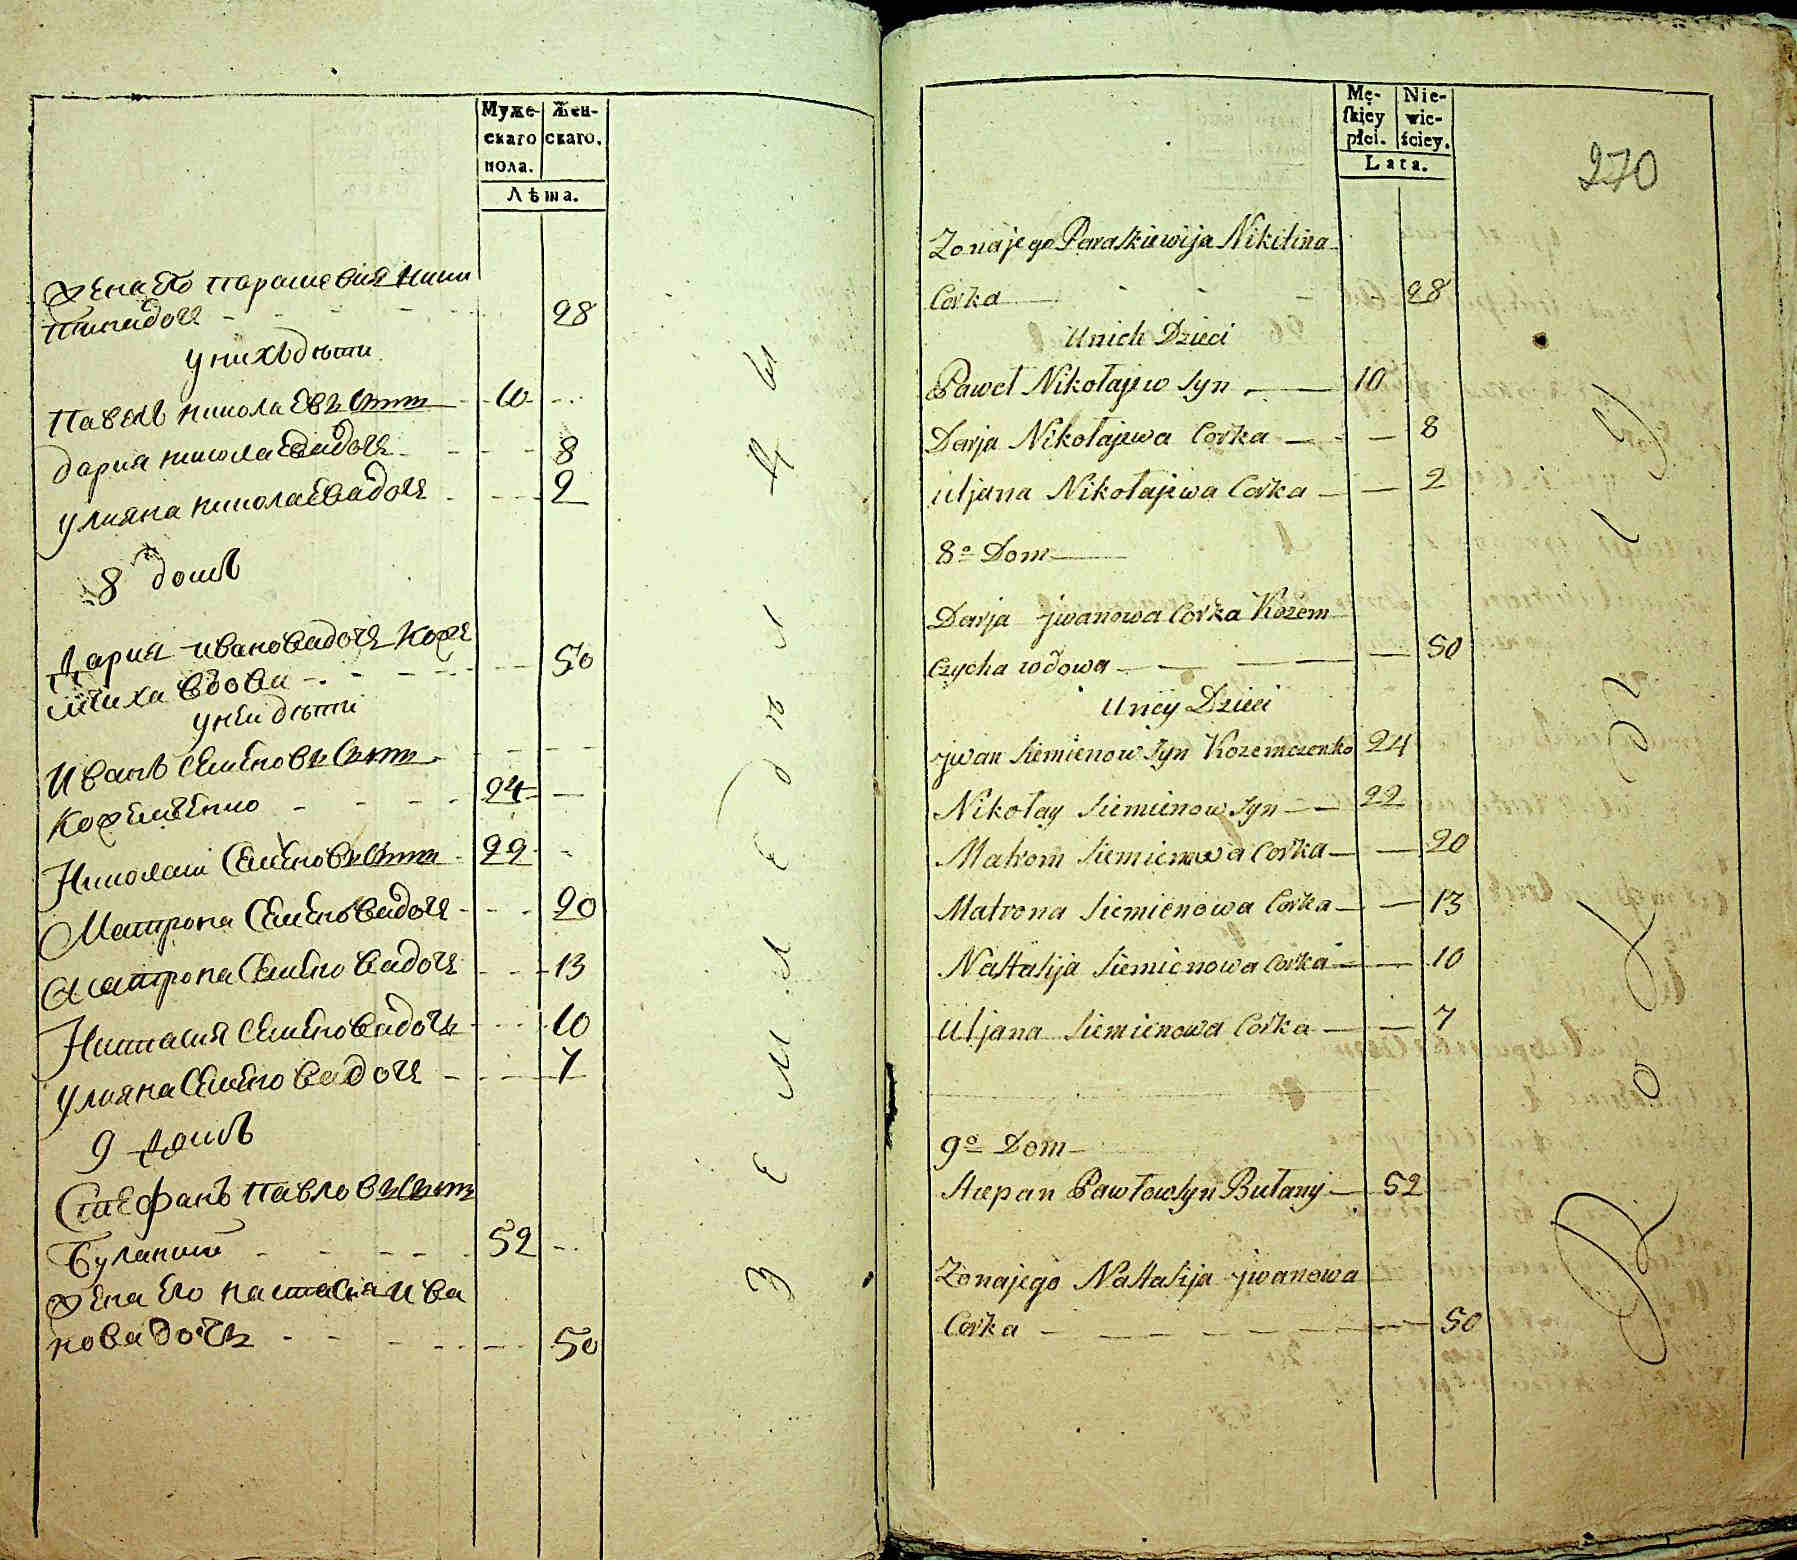 Муже-
скаго
пола.
Жен-
скаго.
Лѣта.
Жена Его параскевия ники
тина дочь 28
у нихъ дѣти
Павелъ николаевъ сынъ 10
дария николаева дочь 8
улияна николаева дочь 2
8 домъ
Дария иванова дочь Коже
мчиха вдова 50
у неи дѣти
Иванъ семеновъ сынъ
Кожемченко 24
Николаи Семеновъ сынъ 22
Матрона Семенова дочь 20
Матрона Семенова дочь 13
Наталия семенова дочь 10
улияна Семенова дочь 7
9 домъ
Стефанъ павловъ сынъ
буланыи 52
жена Его наталия ива
нова дочь 50
Mę-
skiey
płci.
Nie-
wie-
ściey.
Lata.
270
Zona jego Paraskiewija Nikitina
Corka 28
U nich Dzieci
Paweł Nikołajew Syn 10
Darja Nikołajewa Corka 8
Uljana Nikołajewa Corka 2
8o Dom
Darja jwanowa Corka Kozem
czycha wdowa 50
U niey Dzieci
jwan Siemienow Syn Kozemczenko 24
Nikołay Siemienow Syn 22
Siemienowa Corka 20
Matrona Siemienowa Corka 13
Nattalija Siemienowa Corka 10
Uljana Siemienowa Corka 7
9o Dom
Stepan Pawłow Syn Bułany 52
Zona jego Nattalija jwanowa
Corka 50